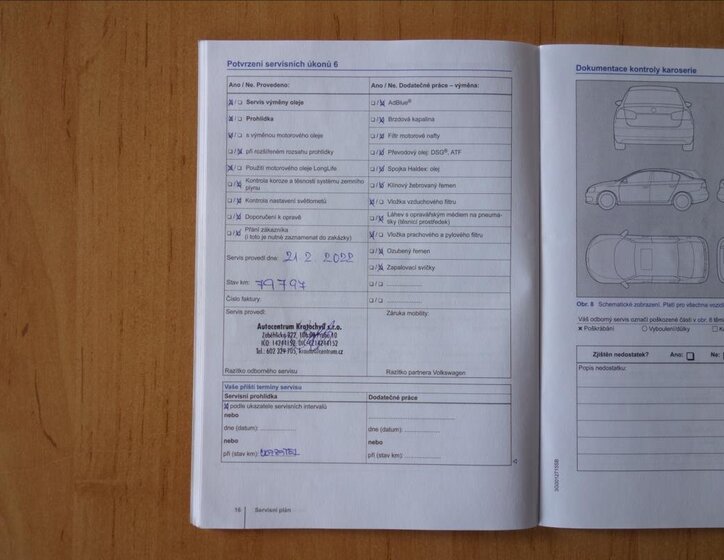 Potvrzení servisních úkonů 6
Ano / Ne. Provedeno:
☒/❏ Servis výměny oleje
☒/❏ Prohlídka
☒/❏ s výměnou motorového oleje
❏/☒ při rozšířeném rozsahu prohlídky
☒/❏ Použití motorového oleje LongLife
❏/☒ Kontrola koroze a těsnosti systému zemního
plynu
❏/☒ Kontrola nastavení světlometů
❏/☒ Doporučení k opravě
❏/☒ Přání zákazníka
(i toto je nutné zaznamenat do zakázky)
Servis provedl dne: 21 2. 2022
Stav km: 79797
Číslo faktury:
Ano / Ne. Dodatečné práce – výměna:
❏/☒ AdBlue®
❏/☒ Brzdová kapalina
❏/☒ Filtr motorové nafty
❏/☒ Převodový olej: DSG®, ATF
❏/☒ Spojka Haldex: olej
❏/☒ Klínový žebrovaný řemen
☒/❏ Vložka vzduchového filtru
❏/☒ Láhev s opravářským médiem na pneuma-
tiky (těsnicí prostředek)
☒/❏ Vložka prachového a pylového filtru
❏/☒ Ozubený řemen
❏/☒ Zapalovací svíčky
❏/❏ ....................
❏/❏ ....................
Servis provedl:
Autocentrum Kratochvíl s.r.o.
Razítko odborného servisu
Záruka mobility:
Razítko partnera Volkswagen
Vaše příští termíny servisu
Servisní prohlídka
☒ podle ukazatele servisních intervalů
nebo
dne (datum): ....................
nebo
při (stav km):
Dodatečné práce
....................
dne (datum): ....................
nebo
při (stav km): ....................
16 Servisní plán
Dokumentace kontroly karoserie
Obr. 8 Schematické zobrazení. Platí pro všechna vozid
Váš odborný servis označí poškozené části v obr. 8 těm
× Poškrábání ○ Vyboulení/důlky ❏ K
Zjištěn nedostatek? Ano: ❏ Ne:
Popis nedostatku: